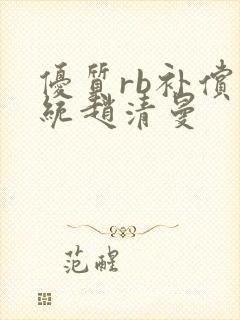 優質rb补償
統趙清曼
范醒